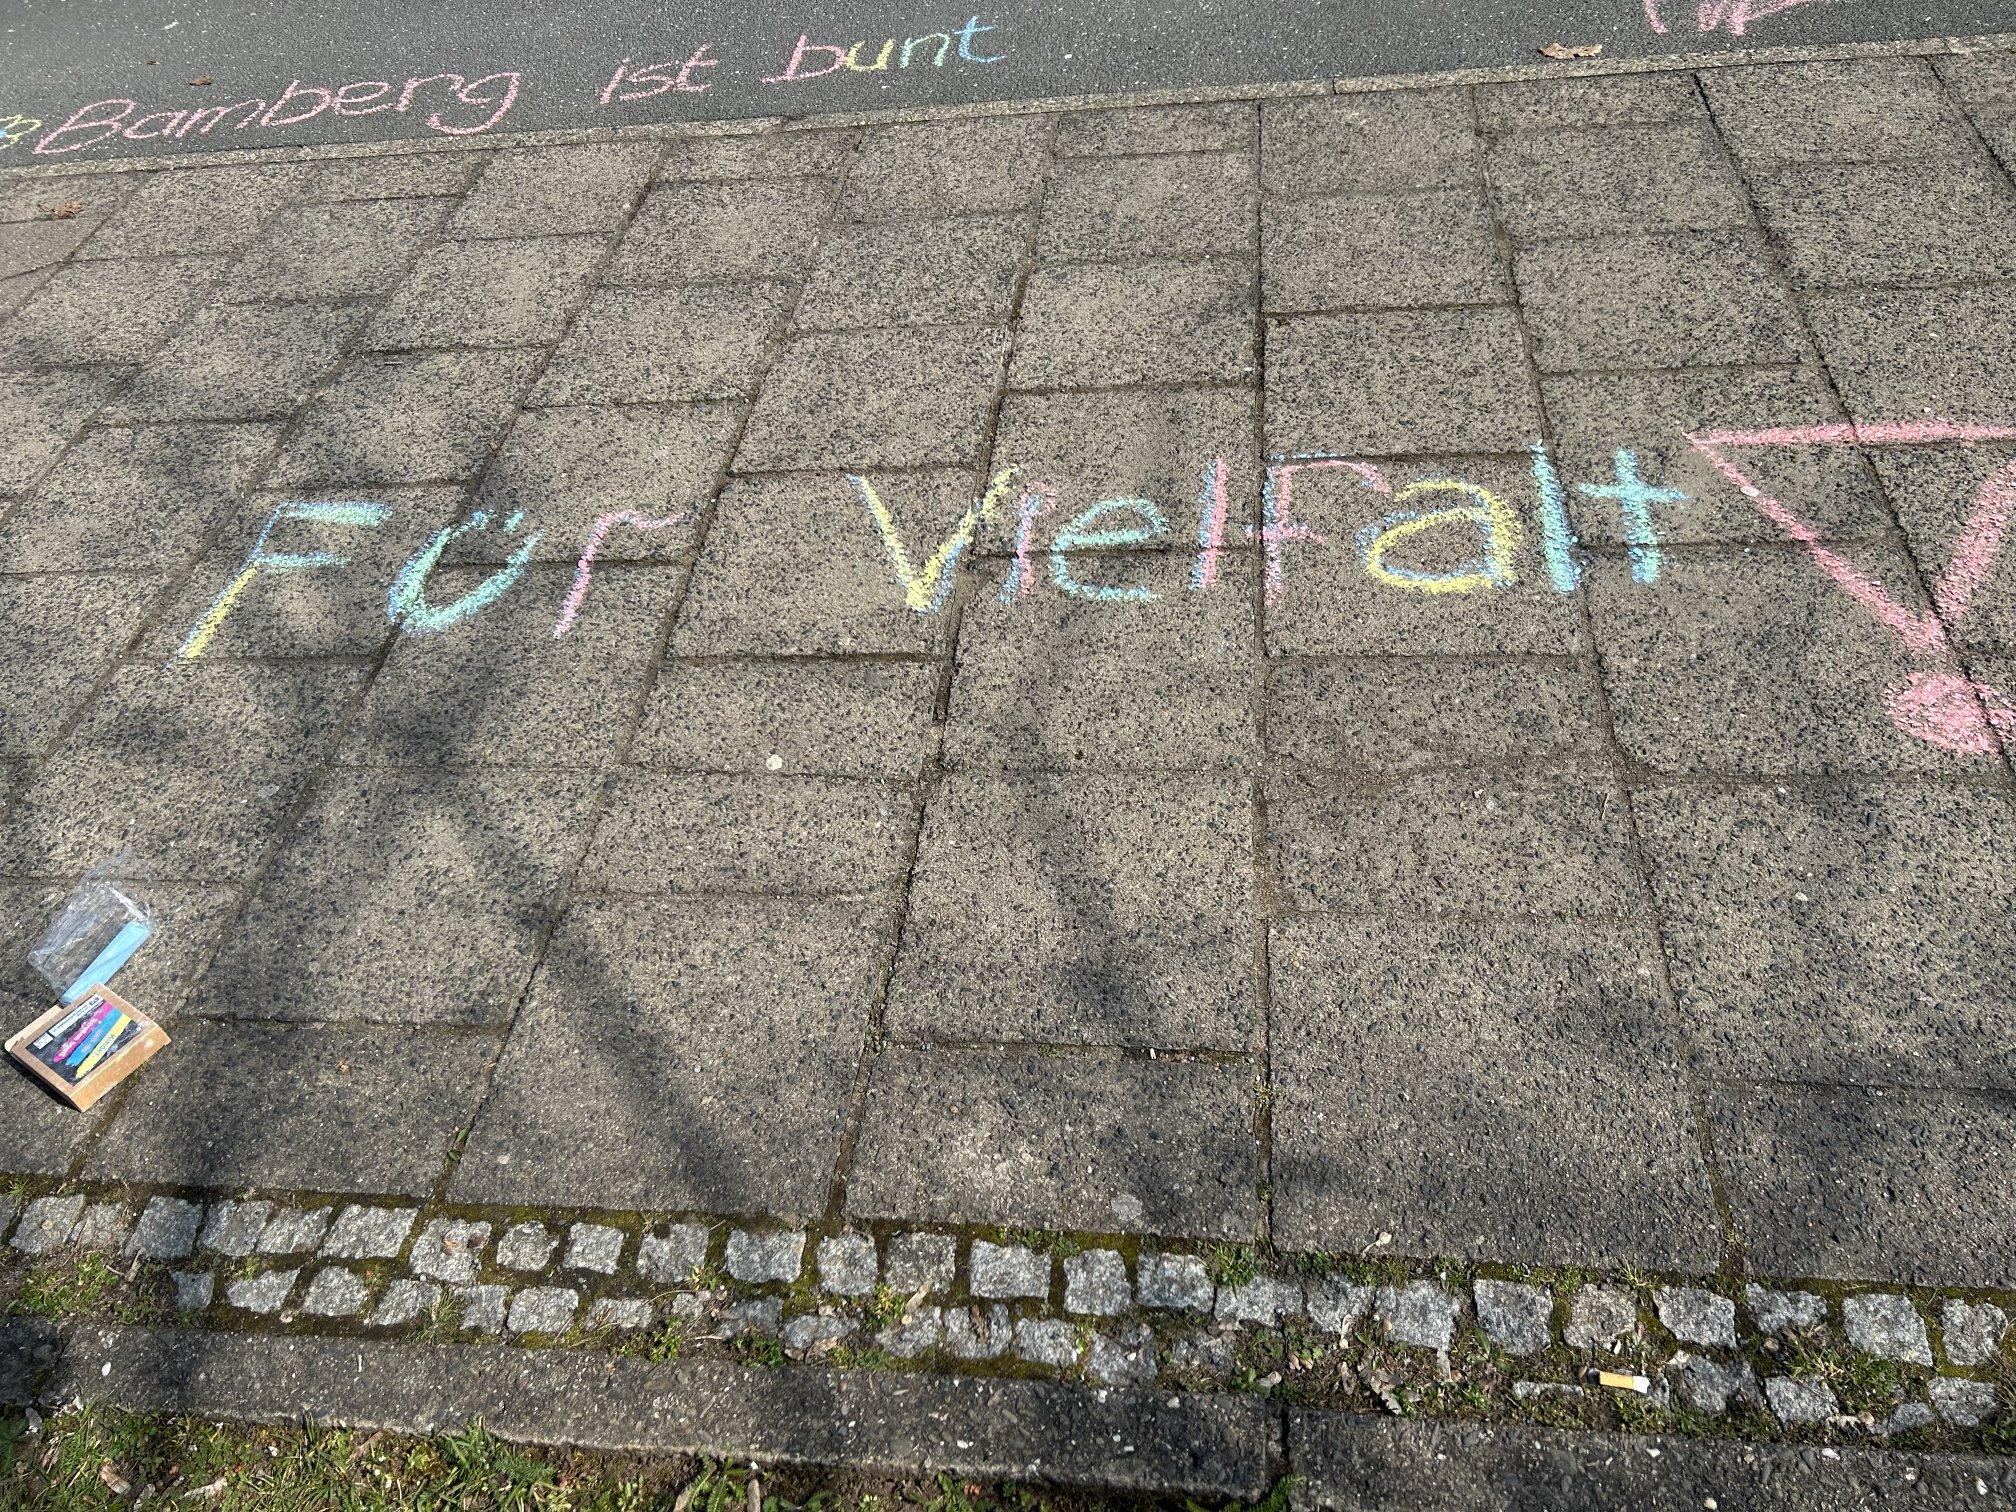 Bamberg ist bunt
Für Vielfalt!